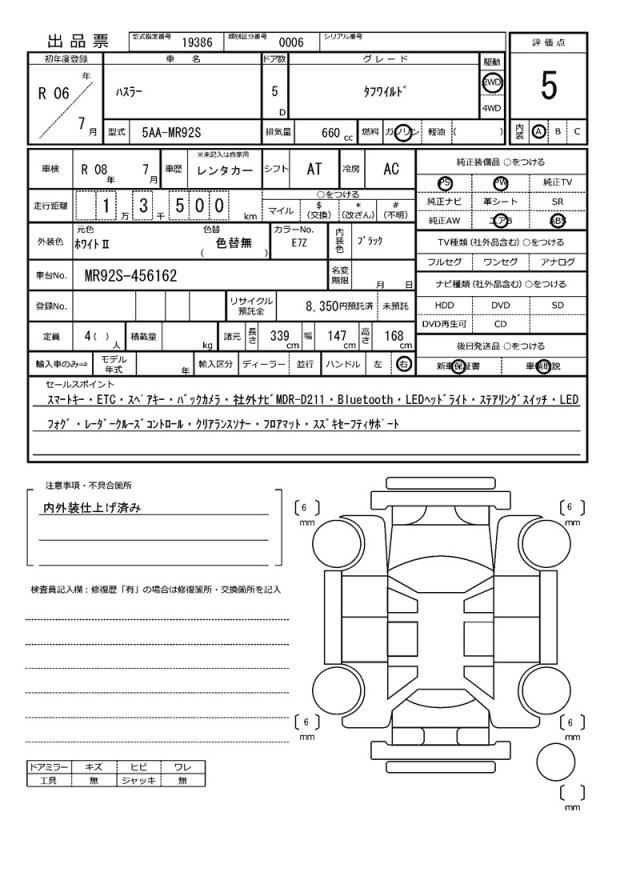 出品票 型式指定番号 19386 類別区分番号 0006 シリアル番号
評価点
5
内装 A B C
初年度登録 車名 ドア数 グレード 駆動
R 06 年 7 月 ハスラー 5 D タフワイルド 2WD 4WD
型式 5AA-MR92S 排気量 660 cc 燃料 ガソリン 軽油 ( )
車検 R 08 年 7 月 車歴 ※未記入は自家用 レンタカー シフト AT 冷房 AC
走行距離 1 万 3 千 5 0 0 km ○をつける マイル $ (交換) * (改ざん) # (不明)
外装色 元色 ホワイトⅡ 色替 色替無 ( ) カラーNo. E7Z 内装色 ブラック
車台No. MR92S-456162 名変期限 月 日
登録No. リサイクル預託金 8,350円預託済 未預託
定員 4( ) 人 積載量 kg 諸元 長さ 339 cm 幅 147 cm 高さ 168 cm
輸入車のみ⇒ モデル年式 年 輸入区分 ディーラー 並行 ハンドル 左 右
純正装備品 ○をつける
PS PW 純正TV
純正ナビ 革シート SR
純正AW エアB ABS
TV種類(社外品含む)○をつける
フルセグ ワンセグ アナログ
ナビ種類(社外品含む)○をつける
HDD DVD SD
DVD再生可 CD
後日発送品 ○をつける
新車保証書 車輌取説
セールスポイント
スマートキー・ETC・スペアキー・バックカメラ・社外ナビMDR-D211・Bluetooth・LEDヘッドライト・ステアリングスイッチ・LED
フォグ・レーダークルーズコントロール・クリアランスソナー・フロアマット・スズキセーフティサポート
注意事項・不具合箇所
内外装仕上げ済み
検査員記入欄：修復歴「有」の場合は修復箇所・交換箇所を記入
〔 6 〕 mm
〔 6 〕 mm
〔 6 〕 mm
〔 6 〕 mm
〔 〕 mm
ドアミラー キズ ヒビ ワレ
工具 無 ジャッキ 無